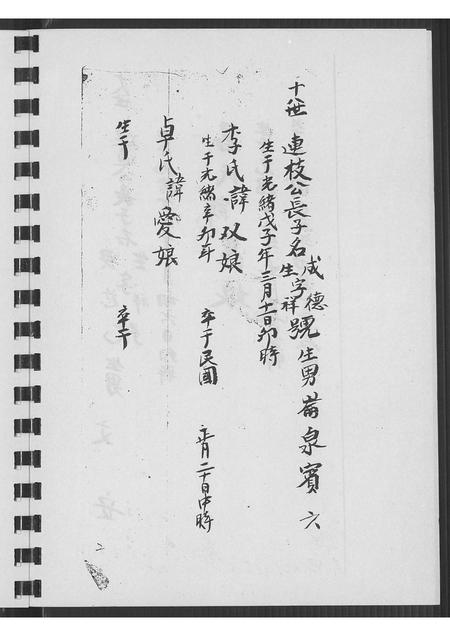 十世 連枝公長子名成德生字祥號 生男 泉賓六
生于光緒戊子年三月十一日卯時
李氏諱双娘
生于光緒辛卯年 卒于民國 正月二十日中時
卓氏諱愛娘
生于 卒于